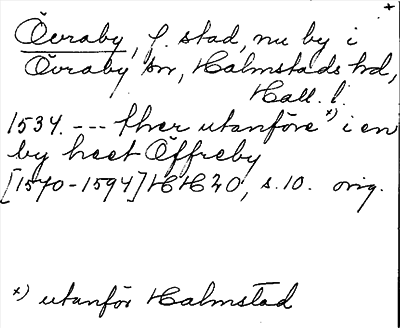 +
Övraby, f. stad, nu by i
Övraby sn, Halmstads hd,
Hall. l.
1534. --- ther utanföre *) i en
by heet Öffreby
[1570-1594] HH20, s. 10. orig.
*) utanför Halmstad